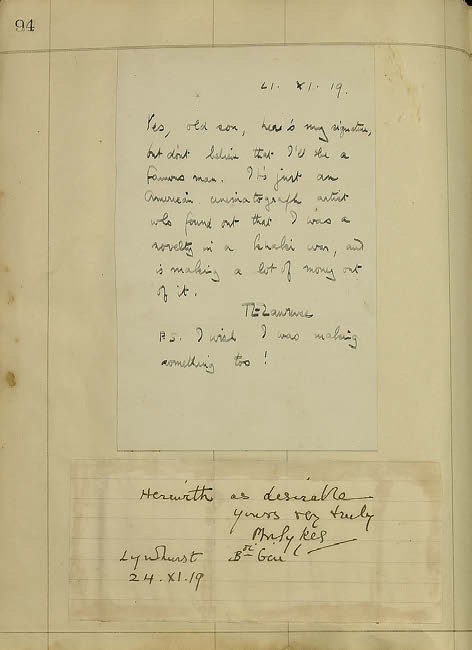 94
21. XI. 19.
Yes, old son, here's my signature,
but don't believe that I'll be a
famous man. It's just an
American cinematograph artist
who found out that I was a
novelty in a khaki war, and
is making a lot of money out
of it.
TELawrence
P.S. I wish I was making
something too!
Herewith as desirable
yours very truly
Sykes
Lyndhurst Br Gen
24. XI. 19